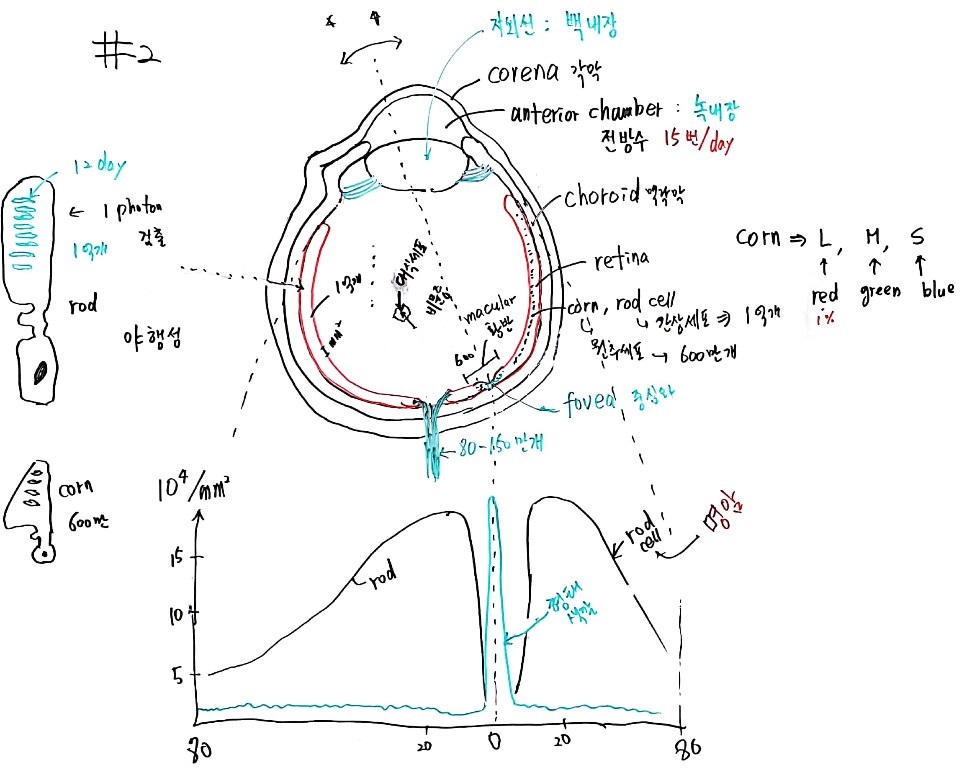 #2
자외선 : 백내장
corena 각막
anterior chamber : 녹내장
전방수 15번/day
12 day
← 1 photon
검출
1억개
rod
야행성
choroid 맥락막
retina
corn, rod cell
간상세포 ⇒ 1억개
원추세포 → 600만개
corn ⇒ L, M, S
red green blue
1%
1억개
1mm²
대식세포
비문증
macular
황반
600
fovea 중심와
80-150만개
corn
600만
10⁴/mm²
15
10⁴
5
rod
rod
cell
명암
형태
색깔
80 20 0 20 80